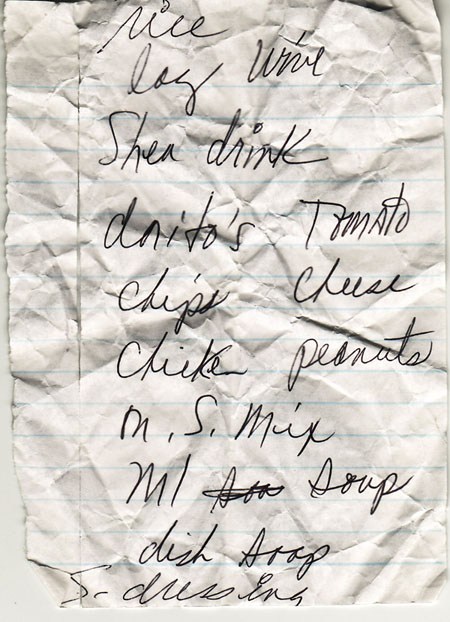 rice
wine
Shea drink
dorito's Tomato
chips cheese
chicken peanuts
M. S. Mix
soup
dish soap
S-dressing